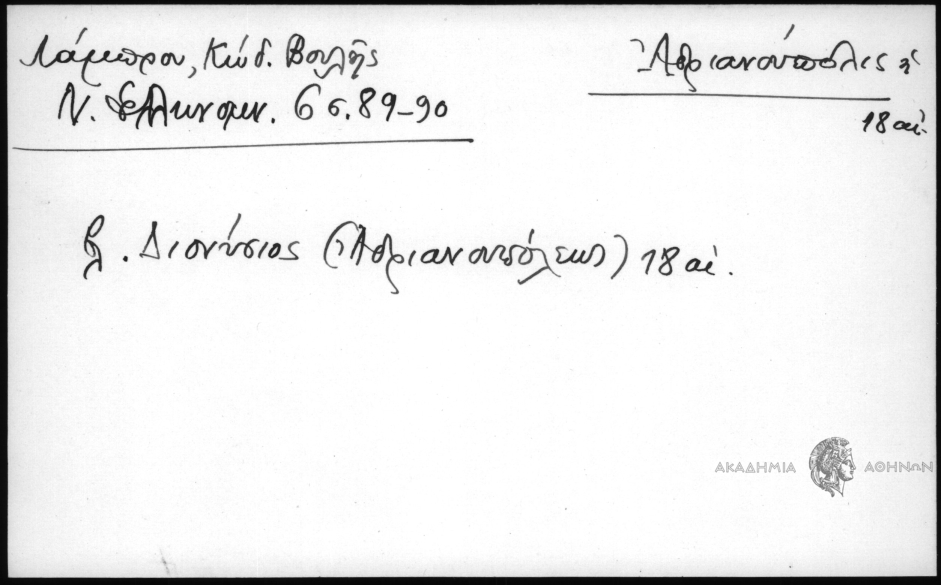 Λάμπρου, Κώδ. Βουλῆς
Ν. Ἑλληνομν. 6 σ. 89-90
Ἀδριανούπολις ἡ
18 αἰ.
βλ. Διονύσιος (Ἀδριανουπόλεως) 18 αἰ.
ΑΚΑΔΗΜΙΑ ΑΘΗΝΩΝ